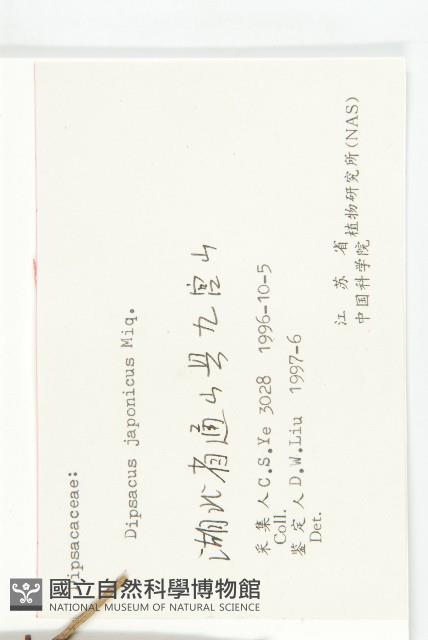 Dipsacaceae:
Dipsacus japonicus Miq.
湖北省通山县九宫山
采集人 C.S.Ye 3028 1996-10-5
Coll.
鉴定人 D.W.Liu 1997-6
Det.
江苏省
中国科学院植物研究所(NAS)
國立自然科學博物館
NATIONAL MUSEUM OF NATURAL SCIENCE